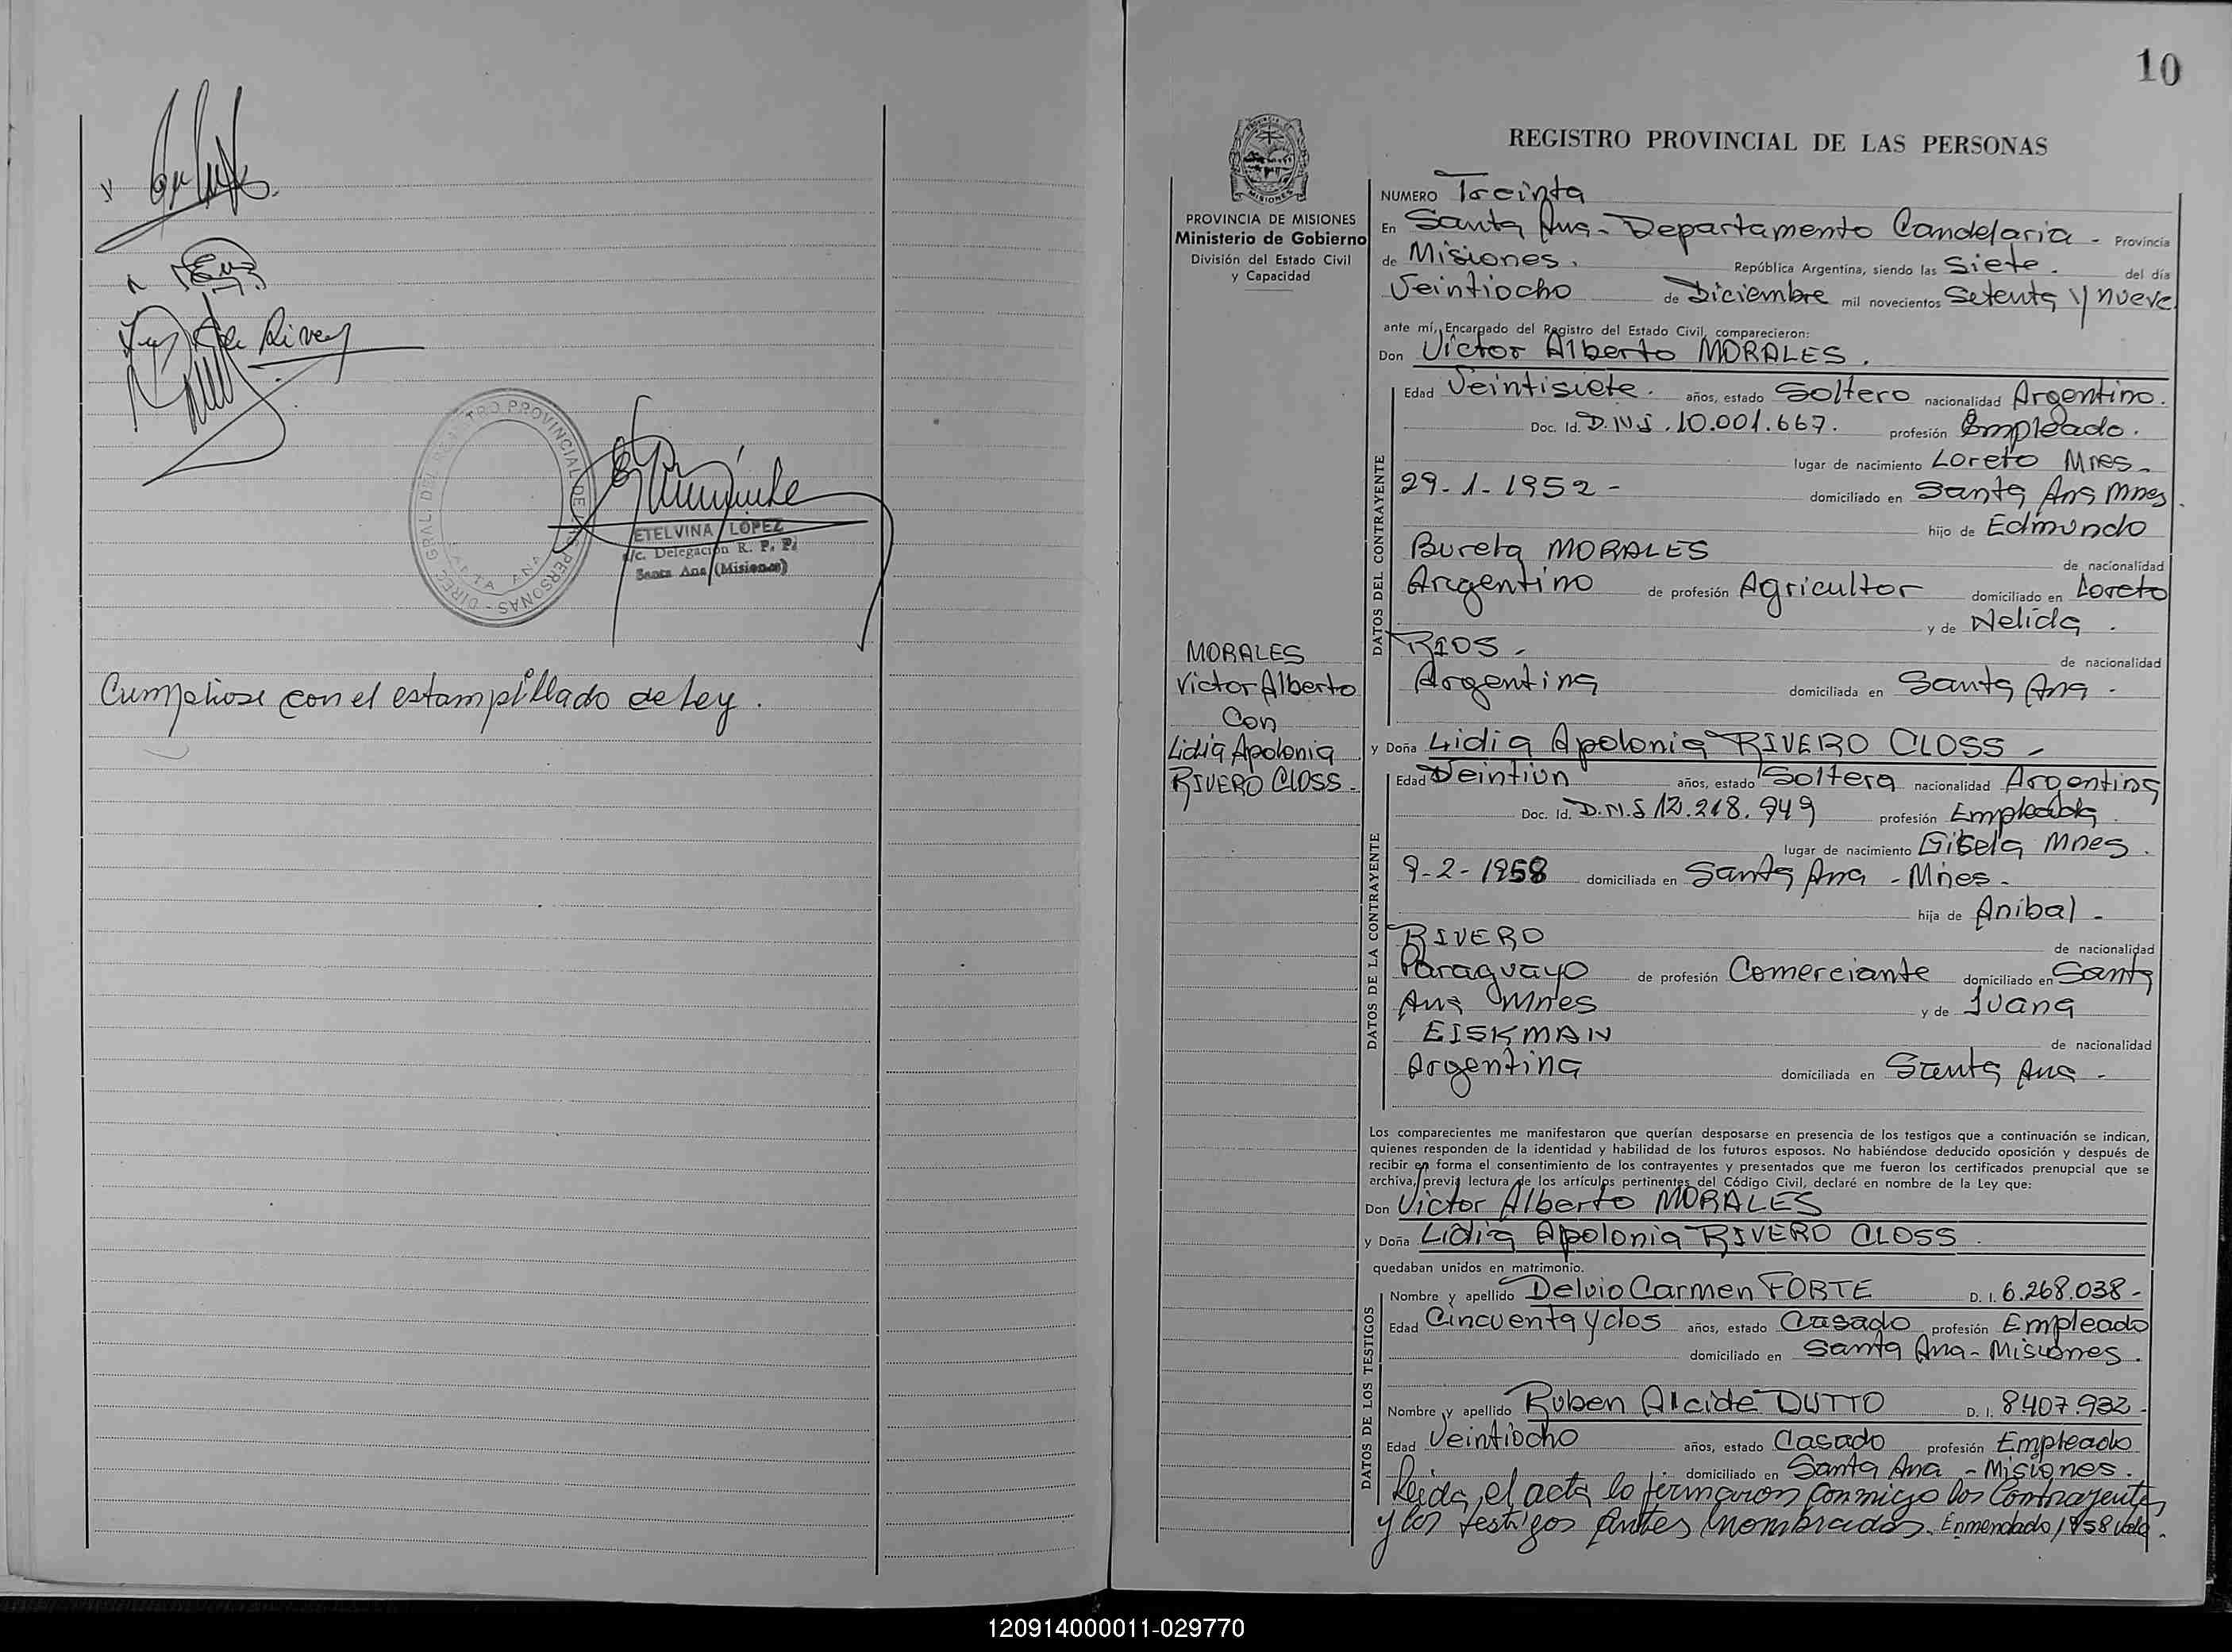 DIREC. GRAL. DEL REGISTRO PROVINCIAL DE LAS PERSONAS - SANTA ANA
ETELVINA LOPEZ
a/c. Delegación R. P. P.
Santa Ana (Misiones)
Cumpliose con el estampillado de Ley.
10
REGISTRO PROVINCIAL DE LAS PERSONAS
PROVINCIA DE MISIONES
Ministerio de Gobierno
División del Estado Civil
y Capacidad
MORALES
Victor Alberto
Con
Lidia Apolonia
RIVERO CLOSS.
NUMERO Treinta
En Santa Ana - Departamento Candelaria - Provincia
de Misiones. República Argentina, siendo las Siete. del día
Veintiocho de Diciembre mil novecientos Setenta y nueve
ante mí, Encargado del Registro del Estado Civil, comparecieron:
Don Victor Alberto MORALES.
DATOS DEL CONTRAYENTE
Edad Veintisiete. años, estado Soltero nacionalidad Argentino.
Doc. Id. D.N.I. 10.001.667. profesión Empleado.
lugar de nacimiento Loreto Mnes.
29-1-1952- domiciliado en Santa Ana Mnes.
hijo de Edmundo
Bureta MORALES de nacionalidad
Argentino de profesión Agricultor domiciliado en Loreto
y de Nelida.
RIOS - de nacionalidad
Argentina domiciliada en Santa Ana.
y Doña Lidia Apolonia RIVERO CLOSS -
DATOS DE LA CONTRAYENTE
Edad Veintiun años, estado Soltera nacionalidad Argentina
Doc. Id. D.N.I 12.218.949 profesión Empleada.
lugar de nacimiento Gisela Mnes.
9-2-1958 domiciliada en Santa Ana - Mnes.
hija de Anibal -
RIVERO de nacionalidad
Paraguayo de profesión Comerciante domiciliado en Santa
Ana Mnes y de Juana
EISKMAN de nacionalidad
Argentina domiciliada en Santa Ana -
Los comparecientes me manifestaron que querían desposarse en presencia de los testigos que a continuación se indican,
quienes responden de la identidad y habilidad de los futuros esposos. No habiéndose deducido oposición y después de
recibir en forma el consentimiento de los contrayentes y presentados que me fueron los certificados prenupcial que se
archiva, previa lectura de los artículos pertinentes del Código Civil, declaré en nombre de la Ley que:
Don Victor Alberto MORALES
y Doña Lidia Apolonia RIVERO CLOSS.
quedaban unidos en matrimonio.
DATOS DE LOS TESTIGOS
Nombre y apellido Delvio Carmen FORTE D. I. 6.268.038-
Edad Cincuenta y dos años, estado Casado profesión Empleado
domiciliado en Santa Ana - Misiones.
Nombre y apellido Ruben Alcide DUTTO D. I. 8407.932-
Edad Veintiocho años, estado Casado profesión Empleado
domiciliado en Santa Ana - Misiones.
Leida el acta la firmaron conmigo los Contrayentes
y los testigos antes nombrados. Enmendado 1958 Vale.
120914000011-029770